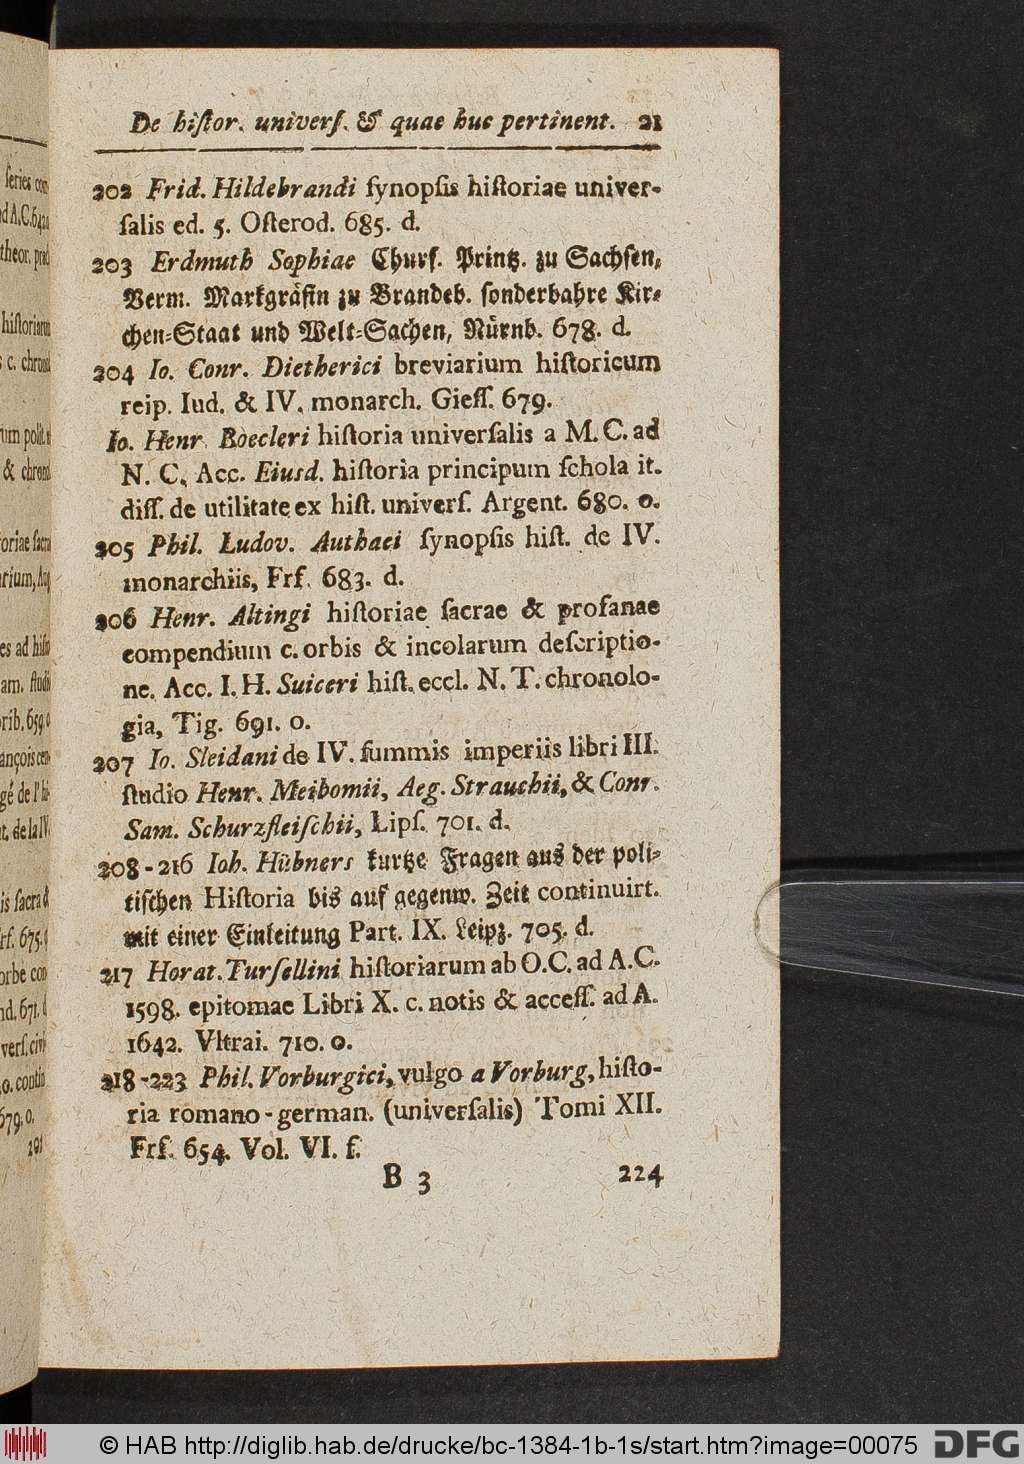 De hiſtor. univerſ. & quae huc pertinent. 21
202 Frid. Hildebrandi ſynopſis hiſtoriae univer-
ſalis ed. 5. Oſterod. 685. d.
203 Erdmuth Sophiae Churf. Printz. zu Sachſen,
Verm. Markgräfin zu Brandeb. ſonderbahre Kir-
chen-Staat und Welt-Sachen, Nürnb. 678. d.
204 Io. Conr. Dietherici breviarium hiſtoricum
reip. Iud. & IV. monarch. Gieſſ. 679.
Io. Henr. Boecleri hiſtoria univerſalis a M. C. ad
N. C. Acc. Eiusd. hiſtoria principum ſchola it.
diſſ. de utilitate ex hiſt. univerſ. Argent. 680. o.
205 Phil. Ludov. Authaei ſynopſis hiſt. de IV.
monarchiis, Frf. 683. d.
206 Henr. Altingi hiſtoriae ſacrae & profanae
compendium c. orbis & incolarum deſcriptio-
ne. Acc. I. H. Suiceri hiſt. eccl. N. T. chronolo-
gia, Tig. 691. o.
207 Io. Sleidani de IV. ſummis imperiis libri III.
ſtudio Henr. Meibomii, Aeg. Strauchii, & Conr.
Sam. Schurzfleiſchii, Lipſ. 701. d.
208-216 Ioh. Hübners kurtze Fragen aus der poli-
tiſchen Hiſtoria bis auf gegenw. Zeit continuirt.
mit einer Einleitung Part. IX. Leipz. 705. d.
217 Horat. Turſellini hiſtoriarum ab O.C. ad A.C.
1598. epitomae Libri X. c. notis & acceſſ. ad A.
1642. Vltrai. 710. o.
218-223 Phil. Vorburgici, vulgo a Vorburg, hiſto-
ria romano-german. (univerſalis) Tomi XII.
Frf. 654. Vol. VI. f.
B 3 224
© HAB http://diglib.hab.de/drucke/bc-1384-1b-1s/start.htm?image=00075 DFG